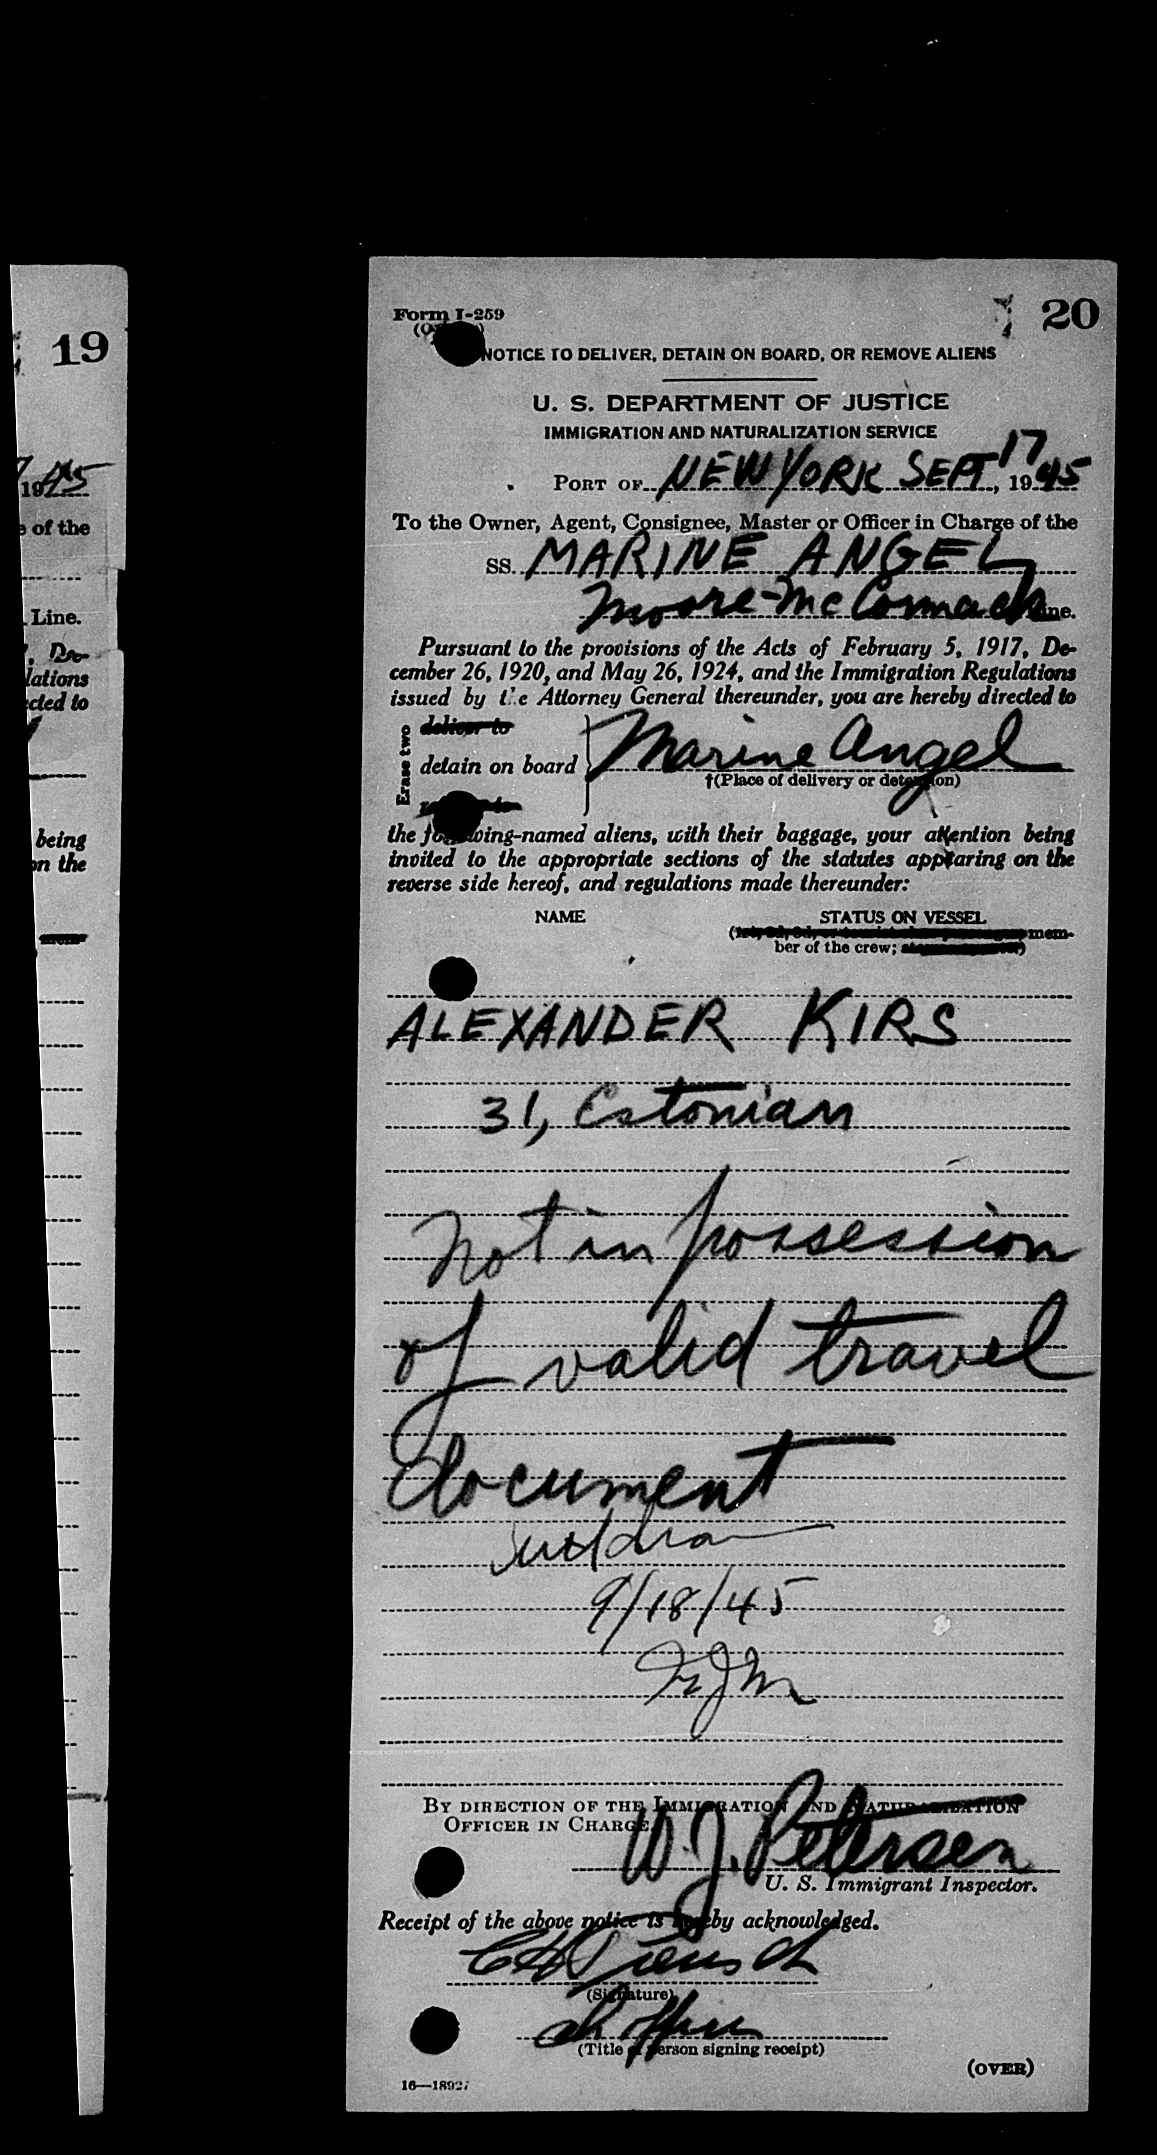 19
1945
e of the
Line.
De-
lations
cted to
being
on the
Form I-259
20
NOTICE TO DELIVER, DETAIN ON BOARD, OR REMOVE ALIENS
U. S. DEPARTMENT OF JUSTICE
IMMIGRATION AND NATURALIZATION SERVICE
PORT OF NEW YORK SEPT 17, 1945
To the Owner, Agent, Consignee, Master or Officer in Charge of the
SS. MARINE ANGEL
Moore-McCormack Line.
Pursuant to the provisions of the Acts of February 5, 1917, De-
cember 26, 1920, and May 26, 1924, and the Immigration Regulations
issued by the Attorney General thereunder, you are hereby directed to
Erase two
deliver to
detain on board
Marine Angel
†(Place of delivery or detention)
the following-named aliens, with their baggage, your attention being
invited to the appropriate sections of the statutes appearing on the
reverse side hereof, and regulations made thereunder:
NAME
STATUS ON VESSEL
mem-
ber of the crew;
ALEXANDER KIRS
31, Estonian
Not in possession
of valid travel
document
9/18/45
BY DIRECTION OF THE IMMIGRATION AND NATURALIZATION
OFFICER IN CHARGE.
W. J. Petersen
U. S. Immigrant Inspector.
Receipt of the above notice is hereby acknowledged.
(Signature)
(Title of person signing receipt)
(OVER)
16—18927